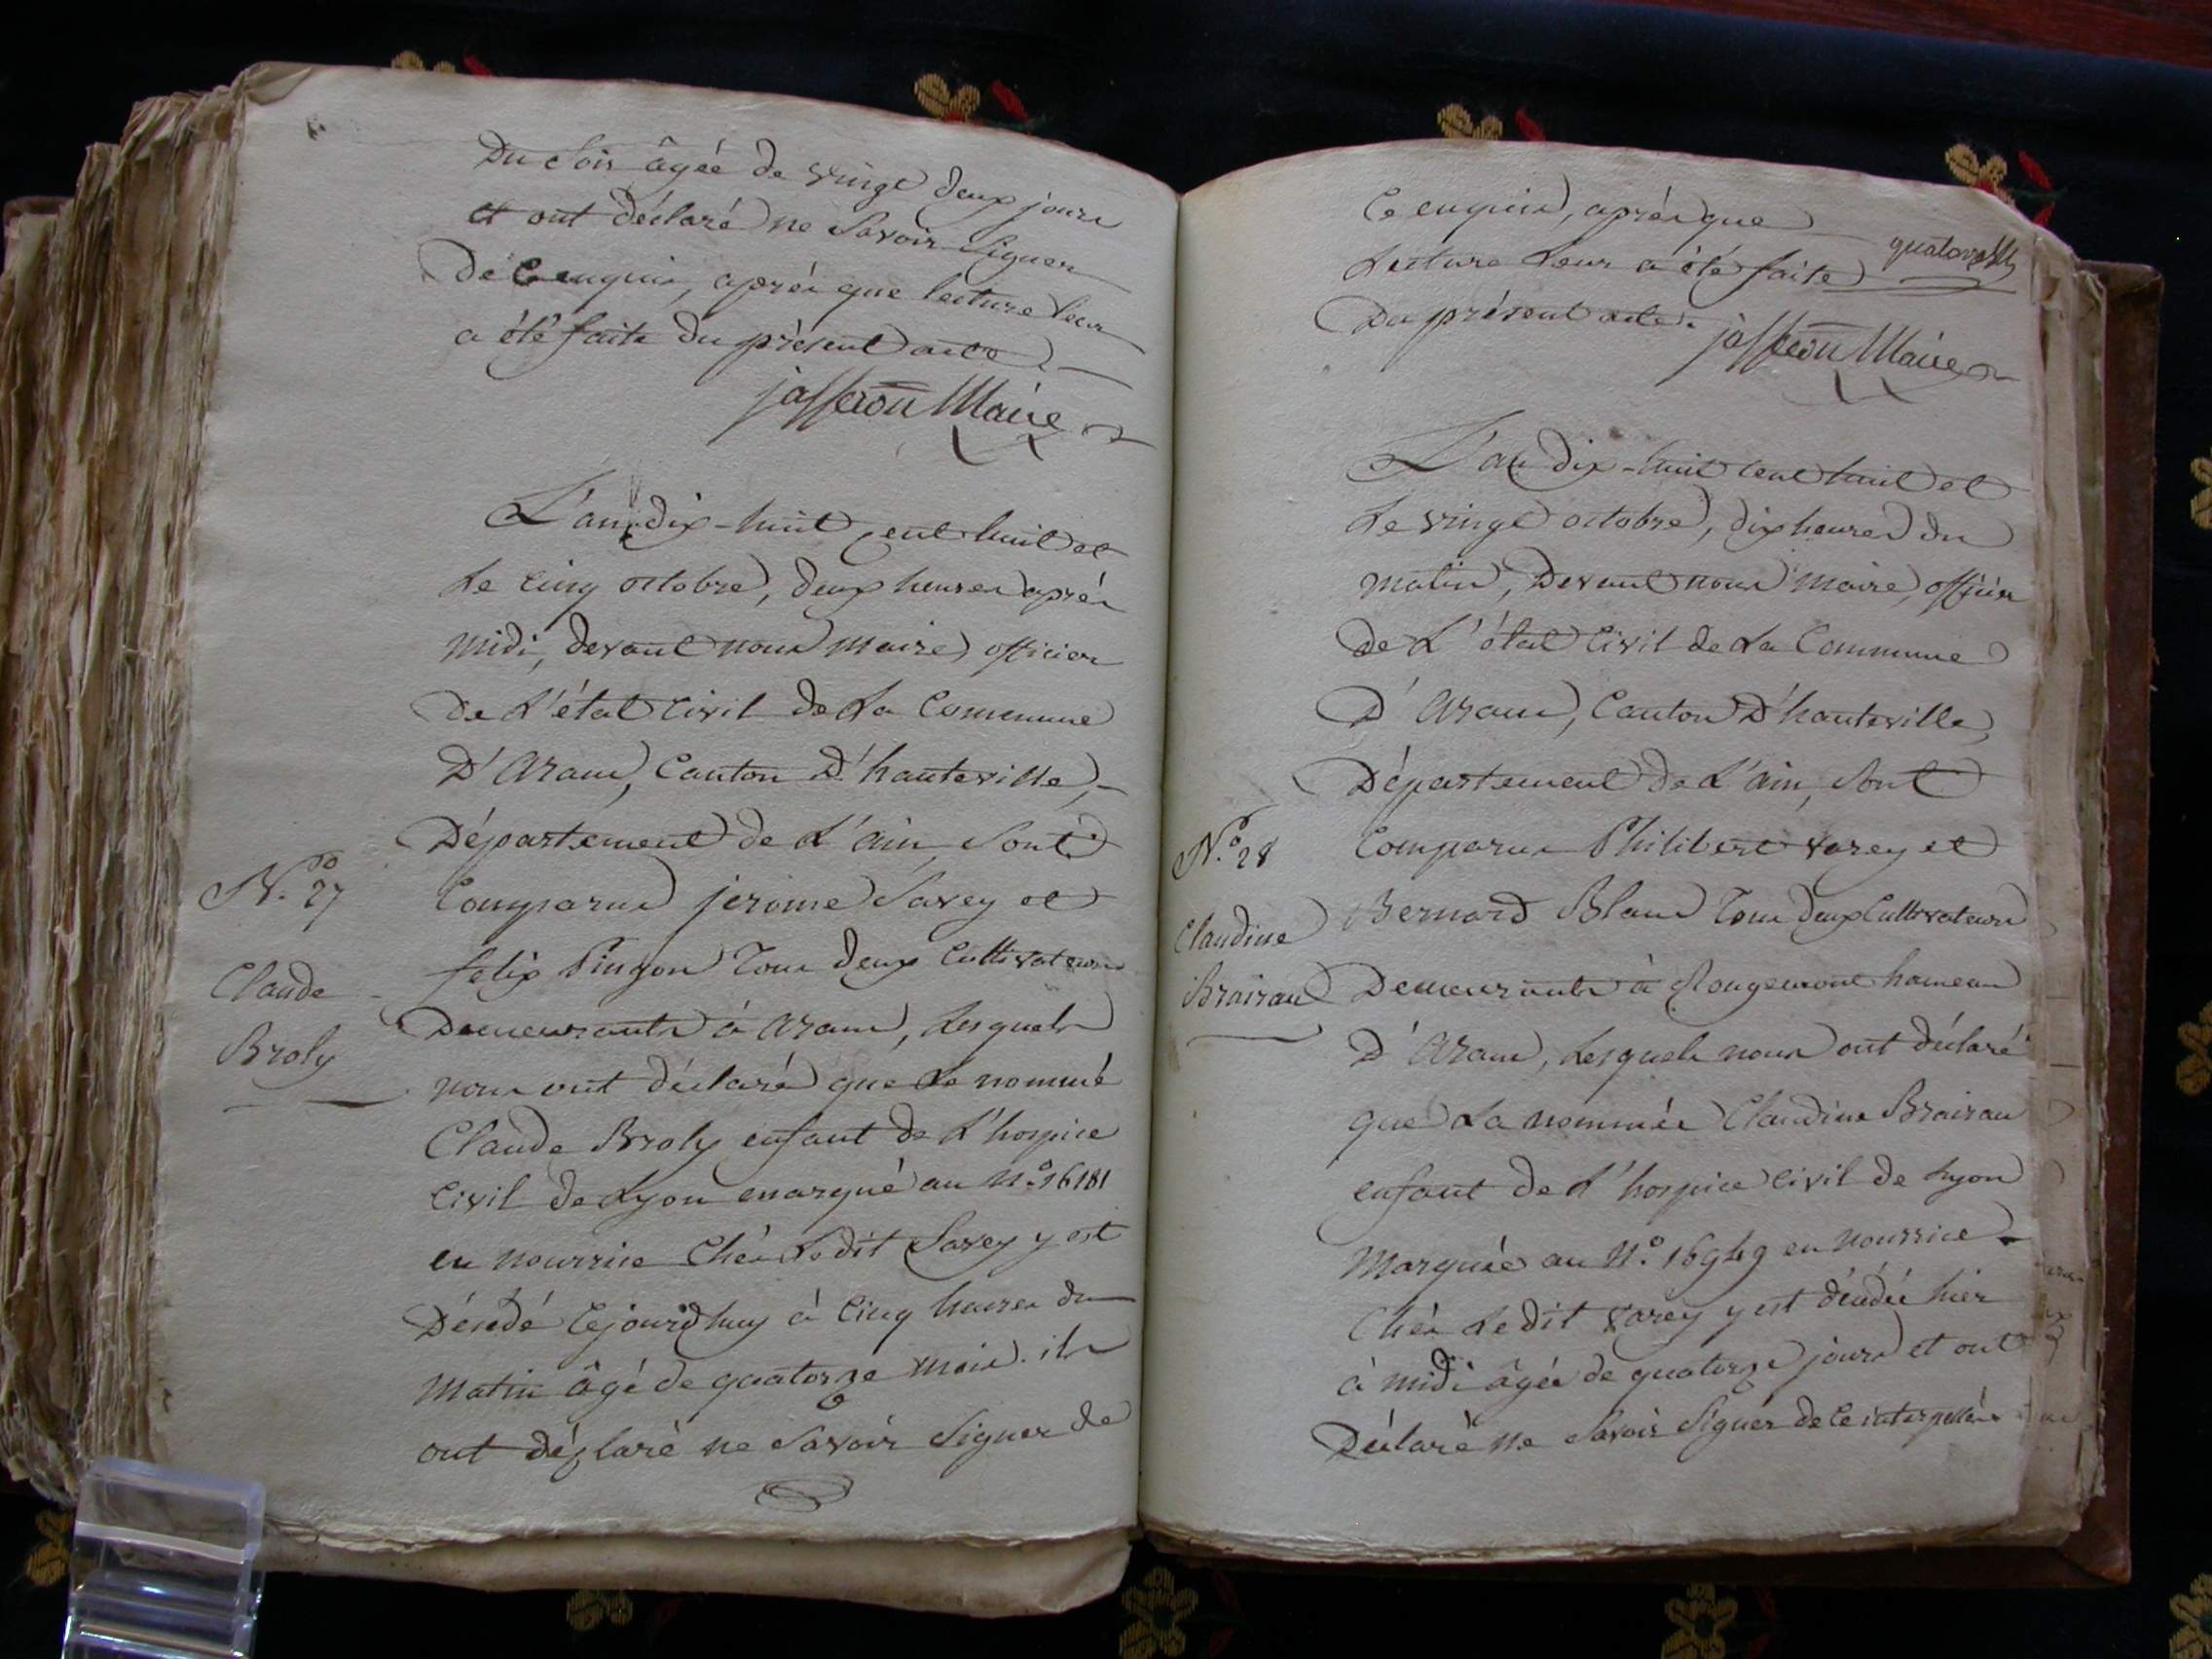 Du Soir âgée de vingt deux jours
et ont déclaré ne Savoir Signer
De ce enquis, après que lecture leur
a été faite du présent acte
jasseron Maire
L'an dix-huit cent huit et
Le cinq octobre, deux heures après
midi, devant nous maire, officier
de L'état Civil de La Commune
D'Aranc, Canton D'hauteville,
Département de L'ain Sont
N.º 27
Comparus jerome Savey et
felix Pingon Tous deux Cultivateurs
Claude
Demeurants à Aranc, Lesquels
Broly
nous ont déclaré que Le nommé
Claude Broly enfant de L'hospice
Civil de Lyon marqué au N.º 16181
en nourrice Chés Ledit Savey y est
Décédé Cejourdhuy à Cinq heures du
Matin âgé de quatorze mois. ils
ont déclaré ne Savoir Signer de
Ce enquis, après que
quatorze
Lecture Leur a été faite
Du présent acte.
jasseron Maire
L'an dix-huit cent huit et
Le vingt octobre, dix heures du
matin, Devant nous maire, officier
de L'état Civil de La Commune
D'Aranc, Canton D'hauteville,
Département de L'ain, Sont
N.º 28
Comparus Philibert varey et
Claudine
Bernard Blanc Tous deux Cultivateurs
Brairau
Demeurants à Rougemont hameau
D'Aranc, Lesquels nous ont déclaré
que La nommée Claudine Brairau
enfant de L'hospice Civil de Lyon
Marquée au N.º 16949 en nourrice
Chés Ledit varey y est décédée hier
à midi âgée de quatorze jours et ont
Déclaré ne Savoir Signer de Ce interpellés